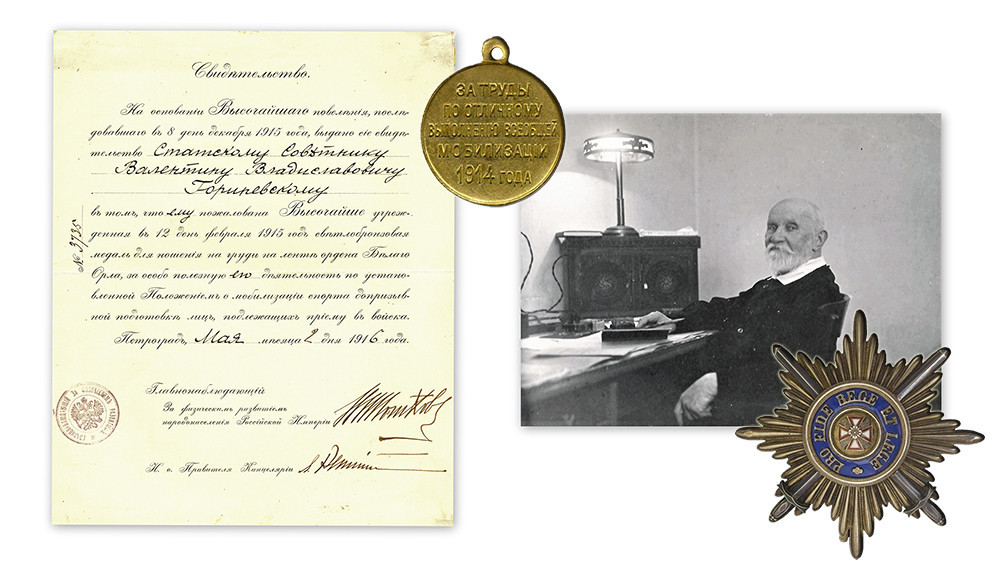 Свидѣтельство.
На основаніи Высочайшаго повелѣнія, послѣ-
довавшаго въ 8 день декабря 1915 года, выдано сіе свидѣ-
тельство Статскому Совѣтнику
Валентину Владиславовичу
Гориневскому
въ томъ, что ему пожалована Высочайше учреж-
денная въ 12 день февраля 1915 годъ свѣтлобронзовая
медаль для ношенія на груди на лентѣ ордена Бѣлаго
Орла, за особо полезную его дѣятельность по устано-
вленной Положеніемъ о мобилизаціи спорта допризыв-
ной подготовкѣ лицъ, подлежащихъ пріему въ войска.
Петроградъ, Мая мѣсяца 2 дня 1916 года.
№ 3735
Главнонаблюдающій
За физическимъ развитіемъ
народонаселенія Россійской Имперіи
И. о. Правителя Канцеляріи
ЗА ТРУДЫ
ПО ОТЛИЧНОМУ
ВЫПОЛНЕНІЮ ВСЕОБЩЕЙ
МОБИЛИЗАЦІИ
1914 ГОДА
PRO FIDE REGE ET LEGE